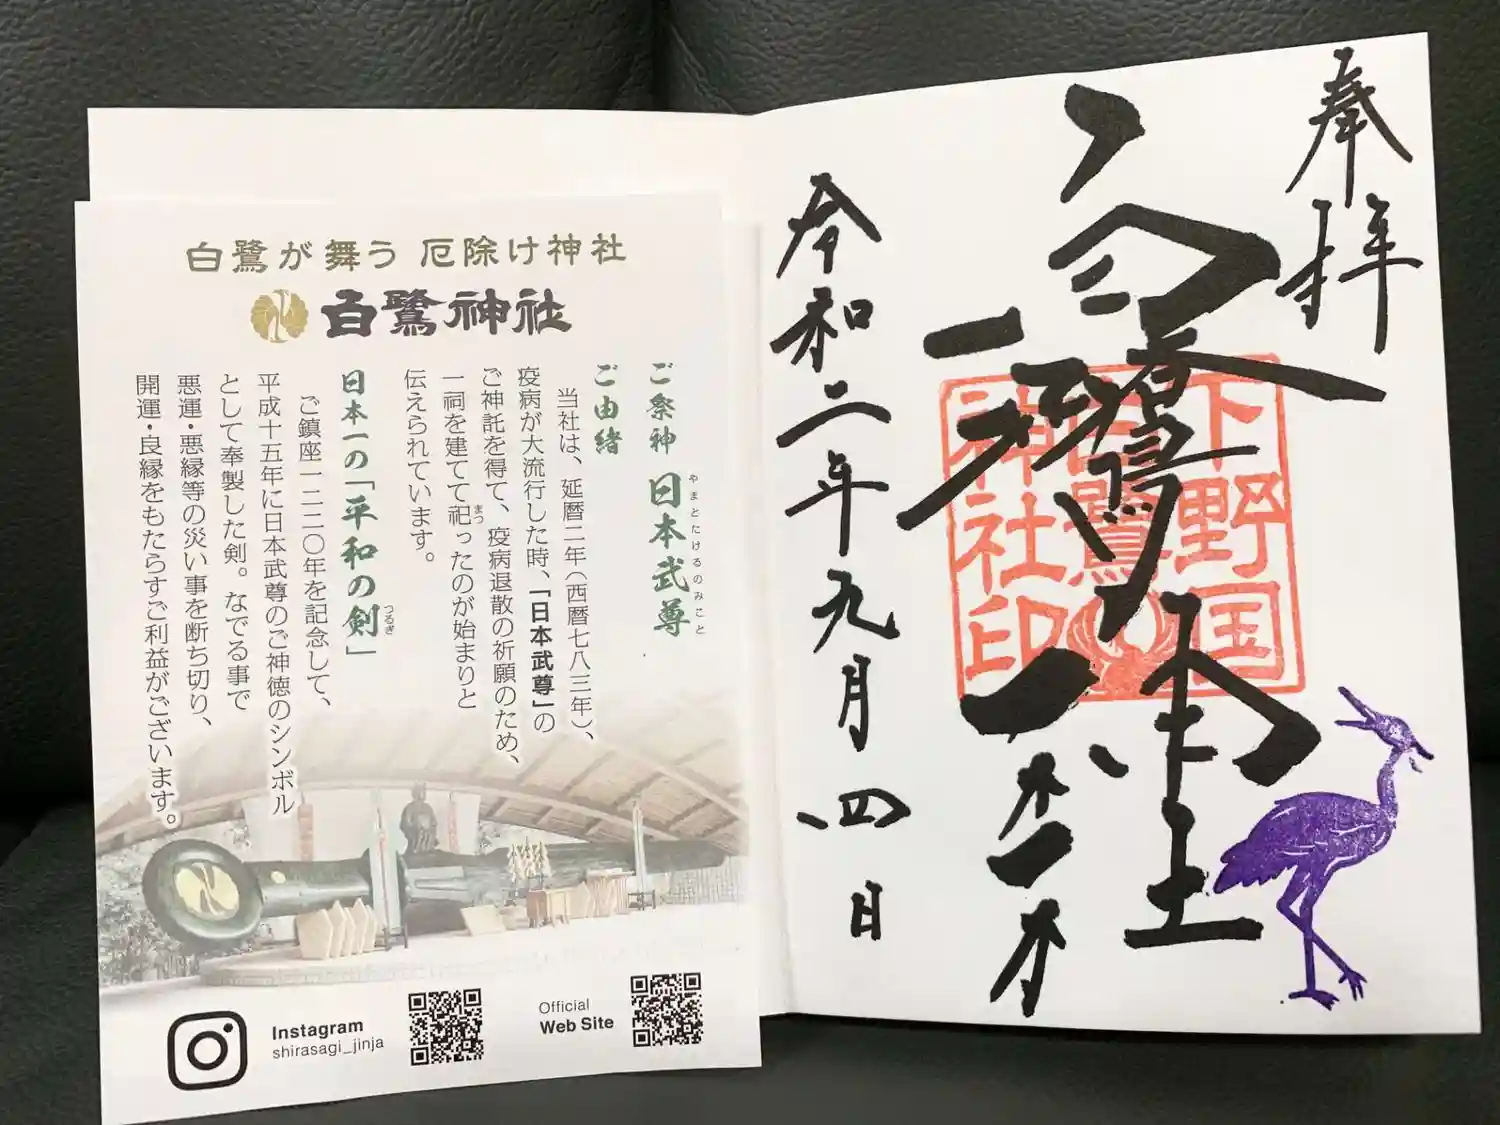 白鷺が舞う 厄除け神社
白鷺神社
ご祭神 日本武尊
やまとたけるのみこと
ご由緒
当社は、延暦二年(西暦七八三年)、
疫病が大流行した時、「日本武尊」の
ご神託を得て、疫病退散の祈願のため、
一祠を建てて祀ったのが始まりと
まつ
伝えられています。
日本一の「平和の剣」
つるぎ
ご鎮座一二二〇年を記念して、
平成十五年に日本武尊のご神徳のシンボル
として奉製した剣。なでる事で
悪運・悪縁等の災い事を断ち切り、
開運・良縁をもたらすご利益がございます。
Instagram
shirasagi_jinja
Official
Web Site
奉拝
下野国
白鷺
神社印
令和二年九月四日